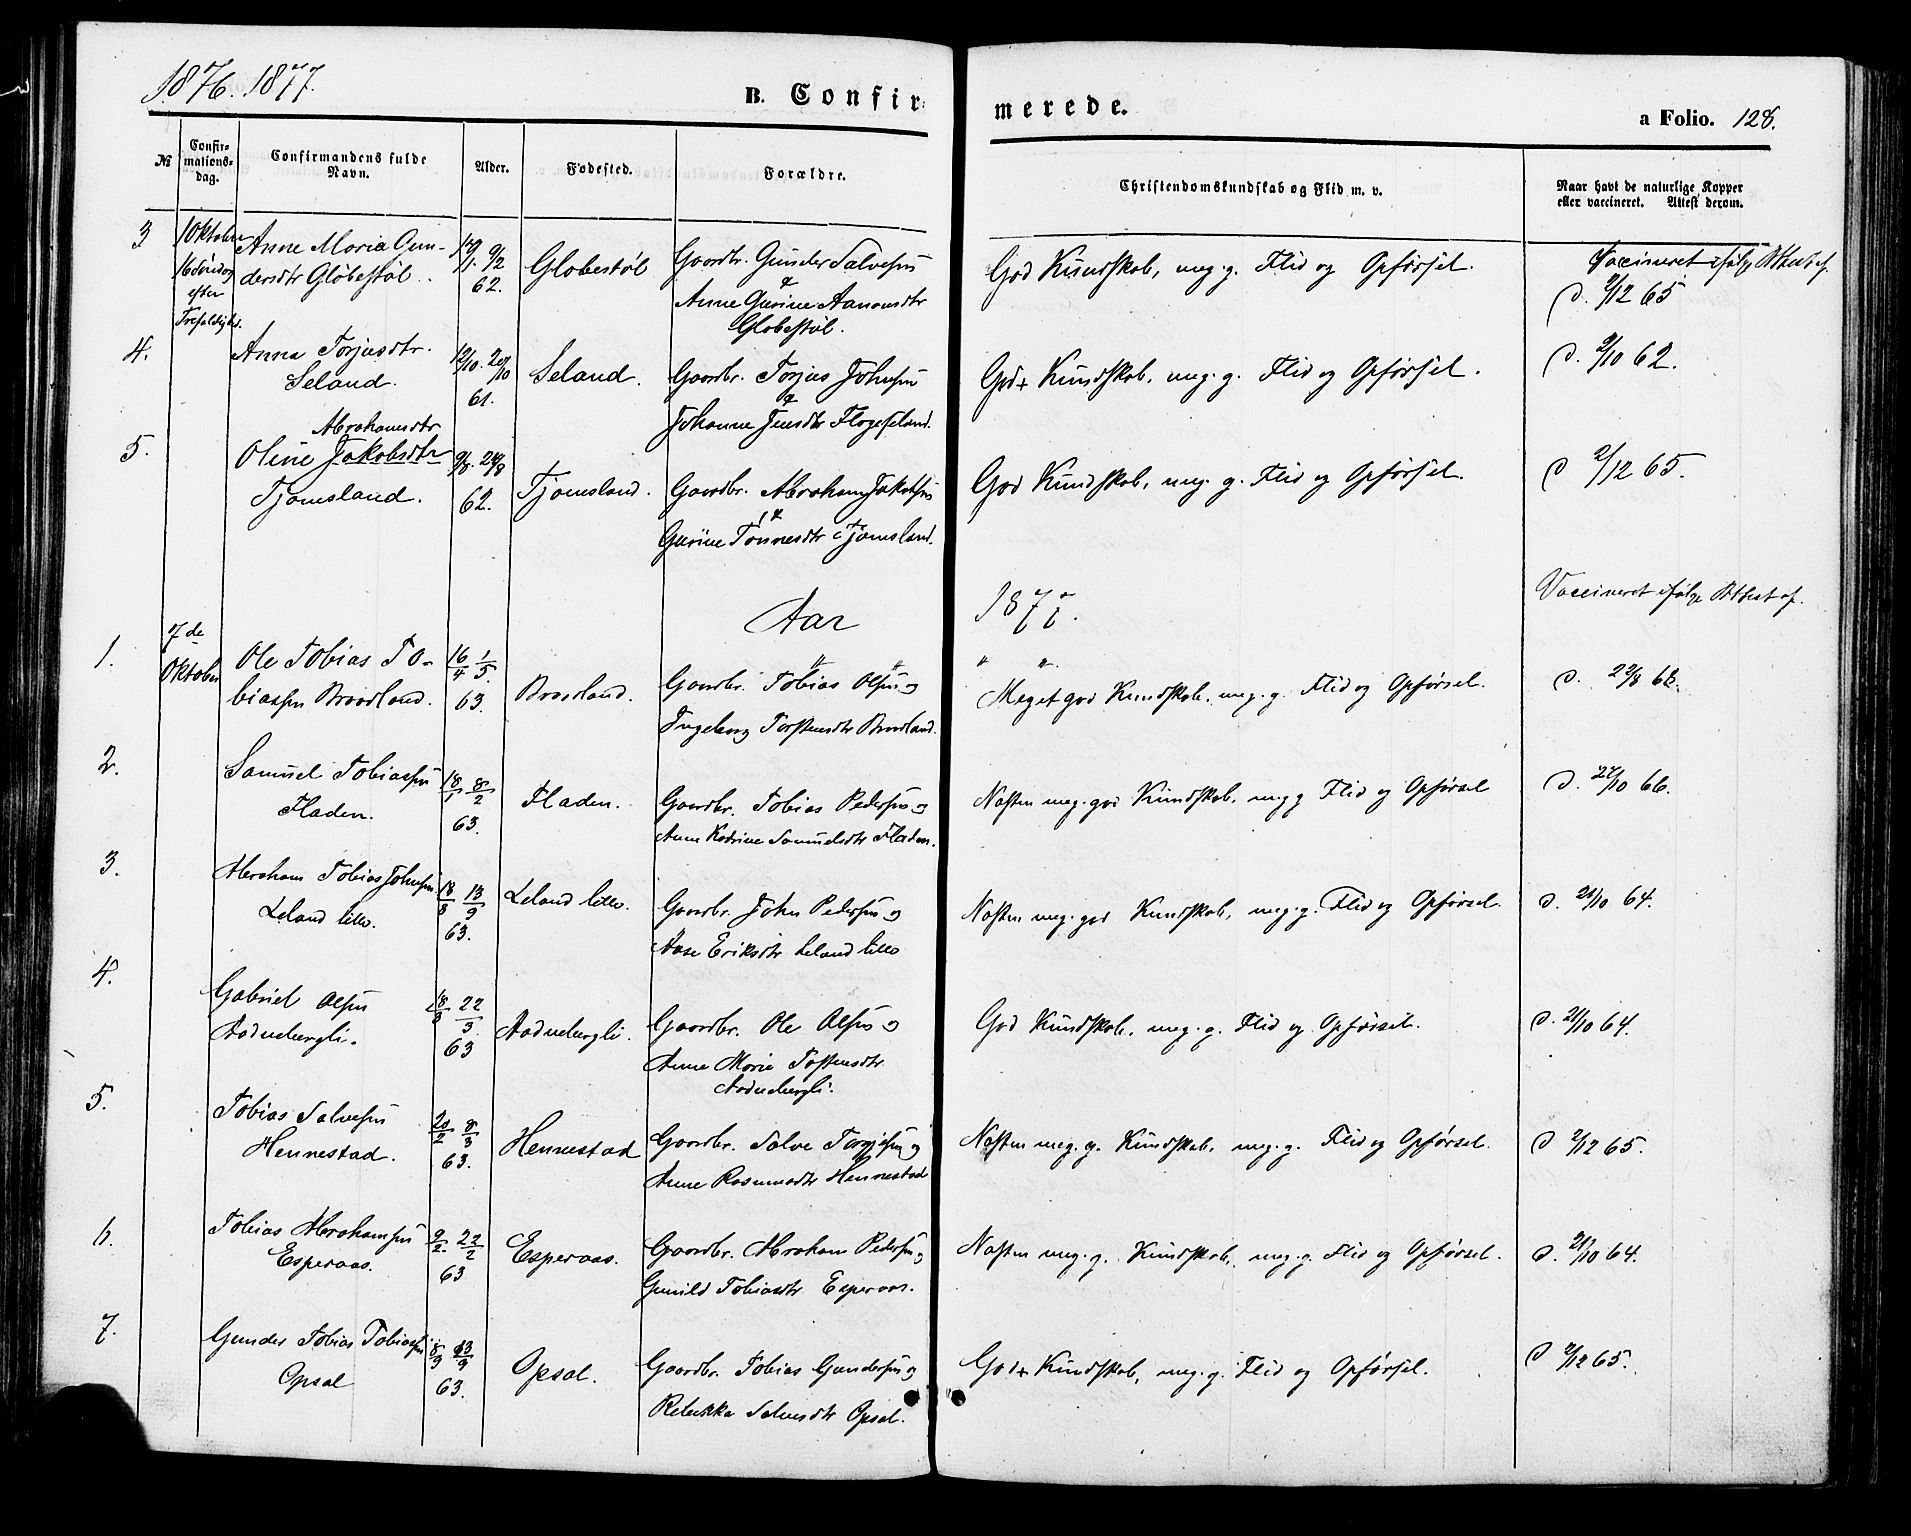 1876. 1877.
B. Confir-
merede.
a Folio. 128.
№
Confir-
mations-
dag.
Confirmandens fulde
Navn.
Alder.
Fødested.
Forældre.
Christendomskundskab og Flid m. v.
Naar havt de naturlige Kopper
eller vaccineret. Attest derom.
3
1 Oktober
16 Søndag
efter
Trefoldighed.
Anne Maria Gun-
dersdtr Globestøl.
9/2
62.
Globestøl
Gaardbr. Gunder Salvesen
&
Anne Gurine Aanonsdtr
Globestøl.
God Kundskab, meg. g. Flid og Opførsel.
Vaccineret ifølge Attest af
d. 2/12 65
4.
Anna Torjusdtr.
Seland.
12/10. 20/10
61.
Seland.
Gaardbr. Torjus Johnsen
&
Johanne Jensdtr Flogeseland.
God+ Kundskab, meg. g. Flid og Opførsel.
d. 2/10 62.
5.
Abrahamsdtr
Oline Jakobsdtr
Tjomsland.
9/8. 24/8
62.
Tjomsland.
Gaardbr. Abraham Jakobsen
&
Gurine Tønnesdtr Tjomsland.
God Kundskab, meg. g. Flid og Opførsel.
d 2/12 65.
Aar
1877.
Vaccineret ifølge Attest af.
1.
7de
Oktober
Ole Tobias To-
biassen Braadland.
16/4 1/5.
63.
Braadland.
Gaardbr. Tobias Olsen og
Ingeborg Torstensdtr Braadland.
" ".
Meget god Kundskab, meg. g. Flid og Opførsel.
d. 22/8 68.
2.
Samuel Tobiassen
Fladen.
18/1 8/2
63.
Fladen.
Gaardbr. Tobias Pedersen og
Anne Katrine Samuelsdtr Fladen.
Næsten meg. god Kundskab, meg g Flid og Opførsel
d. 27/10 66.
3.
Abraham Tobias Johnsen
Leland lille.
18/8 13/9
63.
Leland lille.
Gaardbr. John Pedersen og
Aase Eriksdtr Leland lille
Næsten meg. god Kundskab, meg. g. Flid og Opførsel.
d. 21/10 64.
4.
Gabriel Olsen
Aadnebergli.
18/3 22/3.
63
Aadnebergli.
Gaardbr. Ole Olsen og
Anne Marie Tostensdtr
Aadnebergli.
God Kundskab, meg. g. Flid og Opførsel.
d. 21/10 64.
5.
Tobias Salvesen
Hennestad.
20/2 8/3
63.
Hennestad
Gaardbr. Salve Torgjusen og
Anne Rasmusdtr Hennestad
Næsten meg. g. Kundskab, meg. g. Flid og Opførsel.
d 2/12 65.
6.
Tobias Abrahamsen
Esperaas.
9/2. 22/2
63
Esperaas.
Gaardbr. Abraham Pedersen og
Gunild Tobiasdtr Esperaas.
Næsten meg. g. Kundskab, meg. g. Flid og Opførsel.
d. 21/10 64.
7.
Gunder Tobias Tobiassen
Opsal
8/3 23/3
63.
Opsal.
Gaardbr. Tobias Gundersen og
Rebekka Salvesdtr Opsal.
God+ Kundskab, meg. g. Flid og Opførsel.
d 2/12 65.